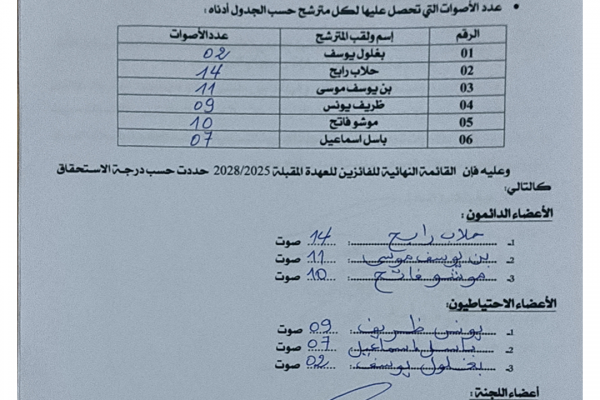 • عدد الأصوات التي تحصل عليها لكل مترشح حسب الجدول أدناه:
الرقم إسم ولقب المترشح عدد الأصوات
01 بغلول يوسف 02
02 حلاب رابح 14
03 بن يوسف موسى 11
04 ظريف يونس 09
05 موشو فاتح 10
06 باسل اسماعيل 07
وعليه فإن القائمة النهائية للفائزين للعهدة المقبلة 2028/2025 حددت حسب درجة الاستحقاق
كالتالي:
الأعضاء الدائمون:
1- حلاب رابح: 14 صوت
2- بن يوسف موسى: 11 صوت
3- موشو فاتح: 10 صوت
الأعضاء الاحتياطيون:
1- يونس ظريف: 09 صوت
2- باسل اسماعيل: 07 صوت
3- بغلول يوسف: 02 صوت
أعضاء اللجنة: